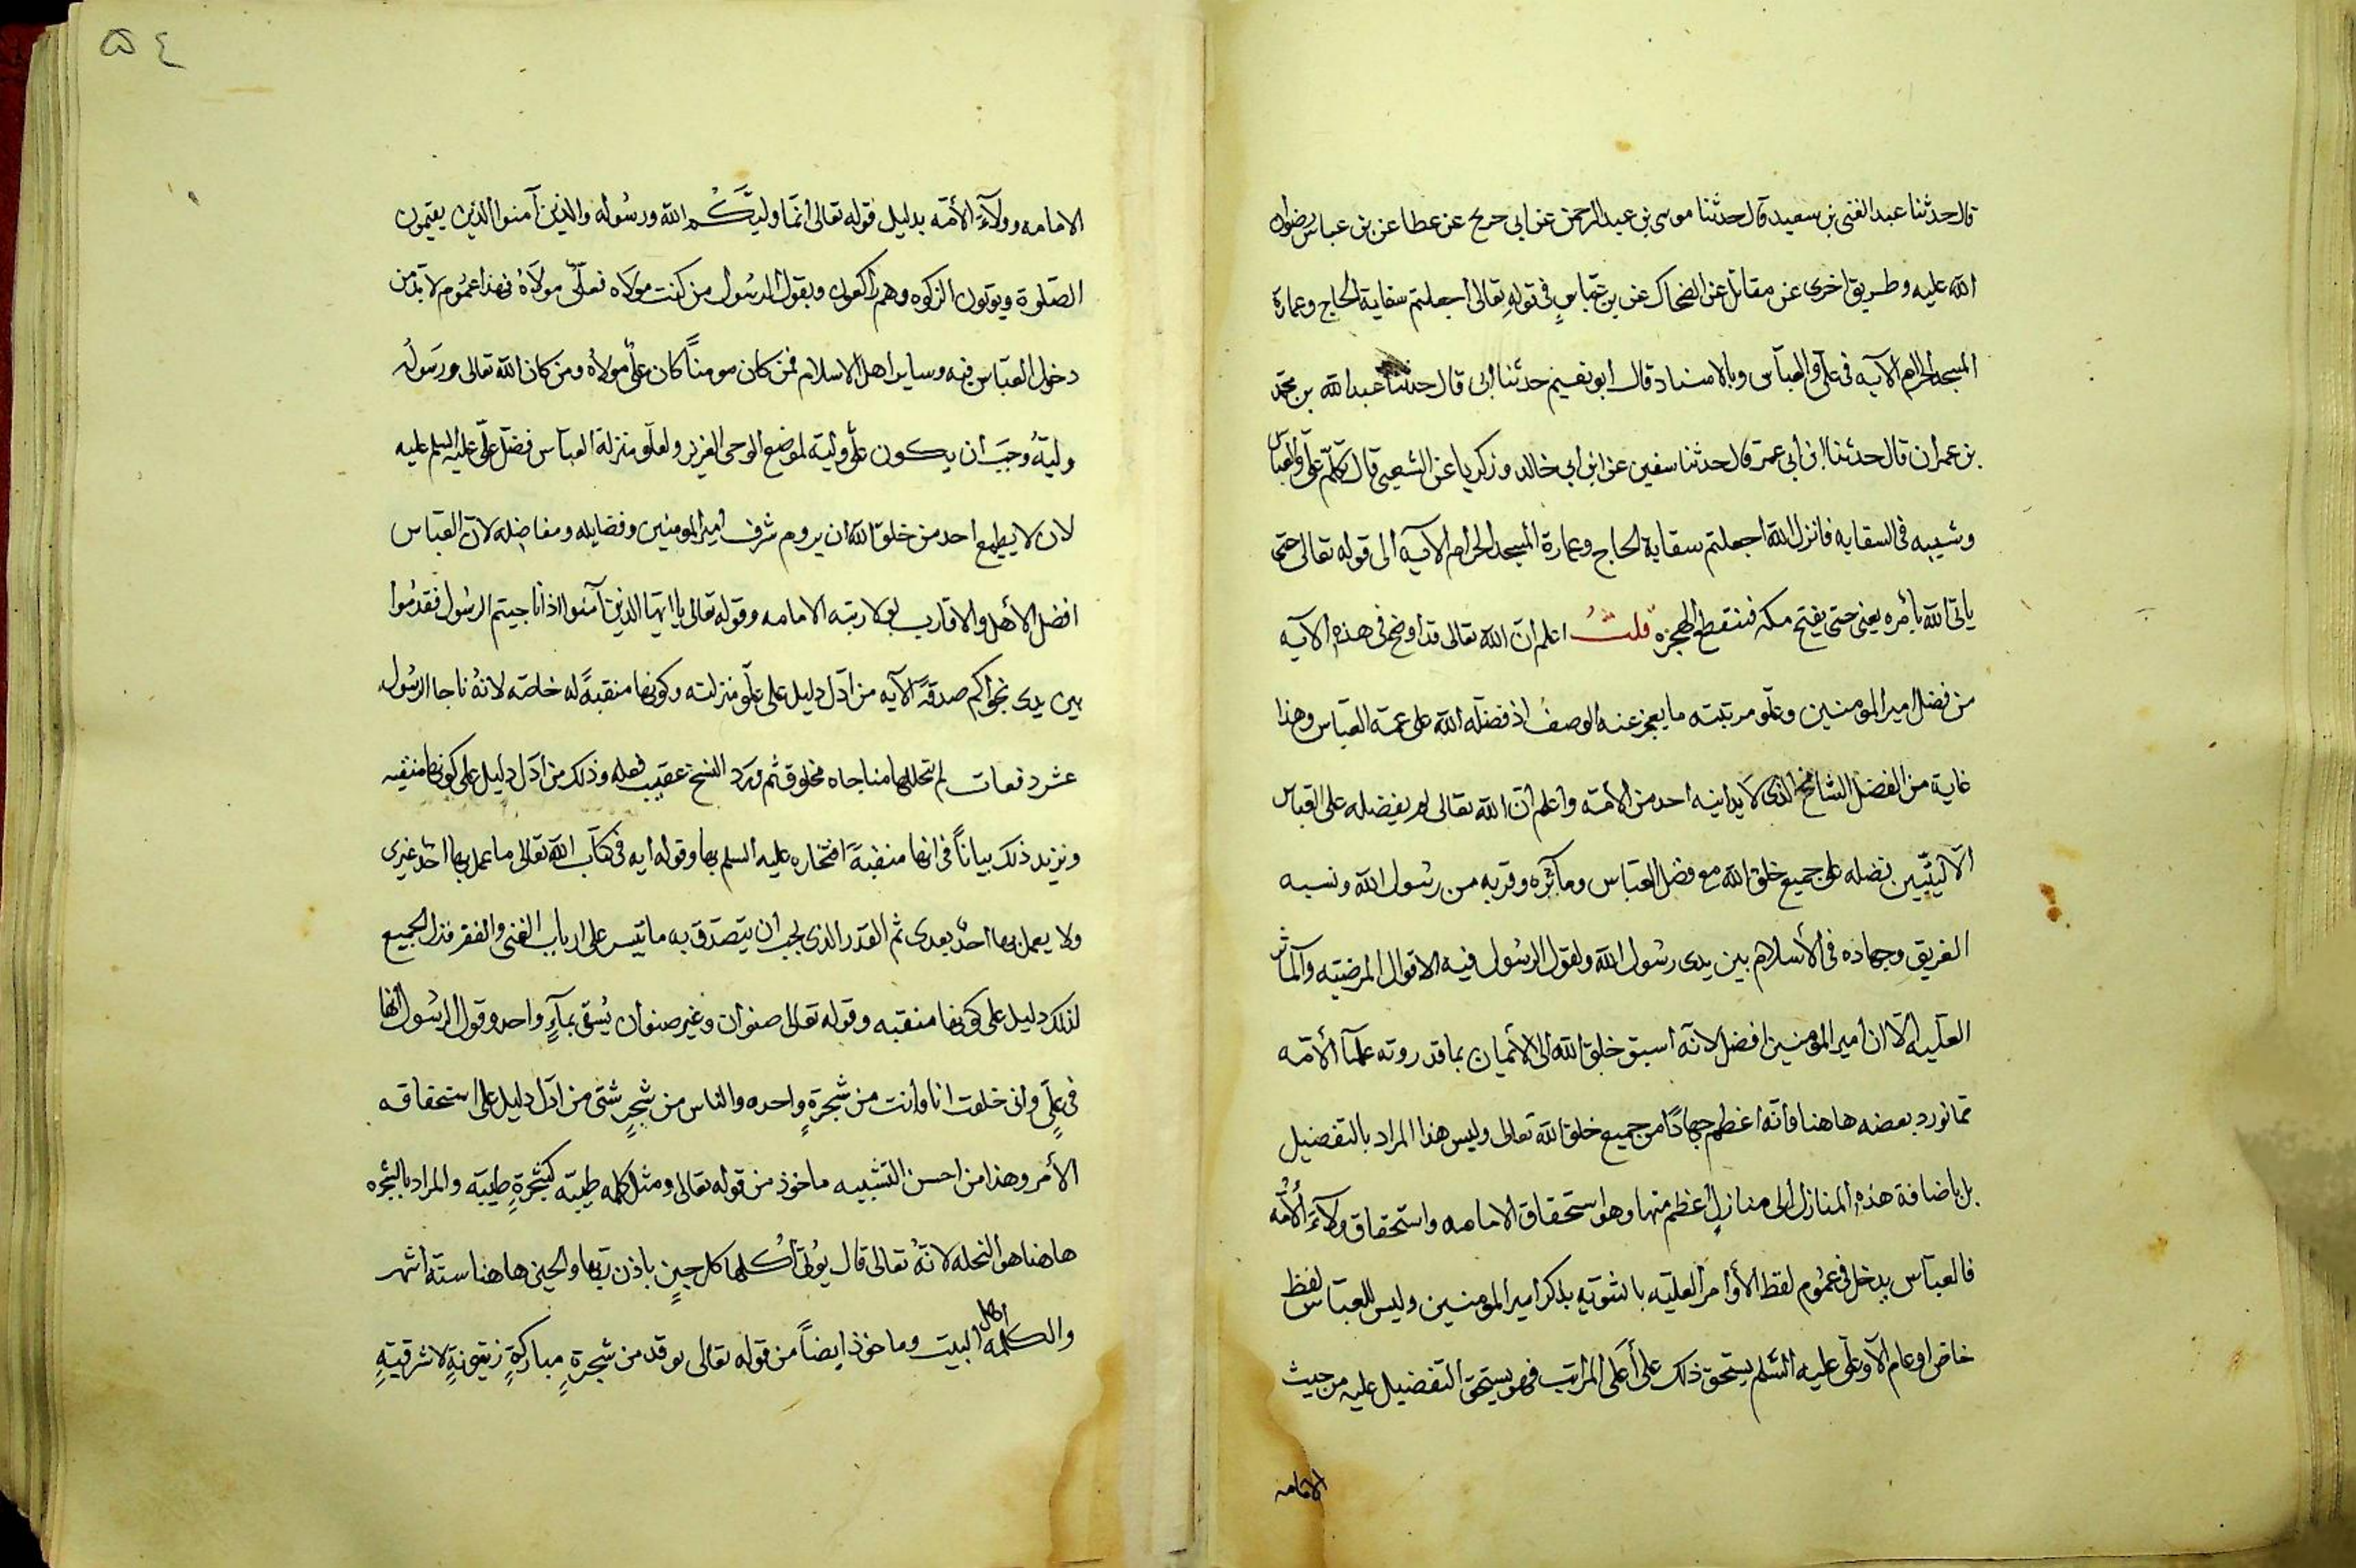 قال حدثنا عبد الغنى بن سعيد قال حدثنا موسى بن عبد الرحمن عن ابى جريح عن عطا عن بن عباس رضوان
الله عليه وطريق اخرى عن مقاتل عن الضحاك عن بن عباس فى قوله تعالى اجعلتم سقاية الحاج وعمارة
المسجد الحرام الآيه فى على والعباس وبالاسناد قال ابو نعيم حدثنا ابى قال حدثنا عبد الله بن محمد
بن عمران قال حدثنا ابن أبى عمر قال حدثنا سفين عن ابن ابى خالد وزكريا عن الشعبى قال تكلم على والعباس
وشيبه فى السقايه فانزل الله اجعلتم سقاية الحاج وعمارة المسجد الحرام الآيه الى قوله تعالى حتى
ياتى الله بأمره يعنى حتى يفتح مكه فتنقطع الهجره قلت اعلم ان الله تعالى قد اوضح فى هذه الآيه
من فضل امير المومنين وعلو مرتبته ما يعجز عنه الوصف اذ فضله الله على عمه العباس وهذا
غاية من الفضل الشامخ الذى لا يدانيه احد من الامه واعلم ان الله تعالى لم يفضله على العباس
الا ليبين فضله على جميع خلق الله مع فضل العباس ومآثره وقربه من رسول الله ونسبه
العريق وجهاده فى الأسلام بين يدى رسول الله ولقول الرسول فيه الاقوال المرضيه والمآثر
العليه الا ان امير المومنين افضل لانه اسبق خلق الله الى الأيمان بما قد روته علمآ الأمه
مما نورد بعضه هاهنا وانه اعظم جهادًا من جميع خلق الله تعالى وليس هذا المراد بالتفضيل
بل باضافة هذه المنازل الى منازل اعظم منها وهو استحقاق الامامه واستحقاق ولآء الأمه
فالعباس يدخل فى عموم لفظ الأوامر العليه بالتنويه بذكر امير المومنين وليس للعباس لفظ
خاص او عام الا وعلى عليه السلم يستحق ذلك على أعلى المراتب فهو يستحق التفضيل عليه من حيث
الامامه
٥٤
الامامه وولآء الأمه بدليل قوله تعالى انما وليكم الله ورسوله والذين آمنوا الذين يقيمون
الصلوة ويوتون الزكوه وهم راكعون وبقول الرسول من كنت مولاه فعلى مولاه فهذا عموم لا بد من
دخول العباس فيه وساير اهل الاسلام فمن كان مومنًا كان على مولاه ومن كان الله تعالى ورسوله
وليه وجب ان يكون على وليه لموضع الوحى العزيز ولعلو منزلة العباس فضل على عليه السلم عليه
لان لا يطمع احد من خلق الله ان يروم شرف امير المومنين وفضايله ومفاضله لان العباس
افضل الأهل والاقارب رتبه الامامه وقوله تعالى يا ايها الذين آمنوا اذا ناجيتم الرسول فقدموا
بين يدى نجواكم صدقة الآيه من ادل دليل على علو منزلته وكونها منقبةً له خاصه لانه ناجا الرسول
عشر دفعات لم تخللها مناجاه مخلوق ثم ورد النسخ عقيب فعله وذلك من ادل دليل على كونها منقبه
ونزيد ذلك بيانًا فى انها منقبةً افتخاره عليه السلم بها وقوله ايه فى كتاب الله تعالى ما عمل بها احد غيرى
ولا يعمل بها احد بعدى ثم القدر الذى يجب ان يتصدق به ما تيسر على ارباب الغنى والفقر فترك الجميع
لذلك دليل على كونها منقبه وقوله تعالى صنوان وغير صنوان يسقى بمآء واحد وقول الرسول انها
فى على وانى خلقت انا وانت من شجرةٍ واحده والناس من شجرٍ شتى من ادل دليل على استحقاقه
الأمر وهذا من احسن التشبيه ماخوذ من قوله تعالى ومثل كلمه طيبه كشجرةٍ طيبه والمراد بالشجره
هاهنا هو النخله لانه تعالى قال يوتى أكلها كل حينٍ باذن ربها والحين هاهنا سته اشهر
والكلمه اهل البيت وماخوذ ايضاً من قوله تعالى يوقد من شجرةٍ مباركةٍ زيتونةٍ لا شرقيةٍ